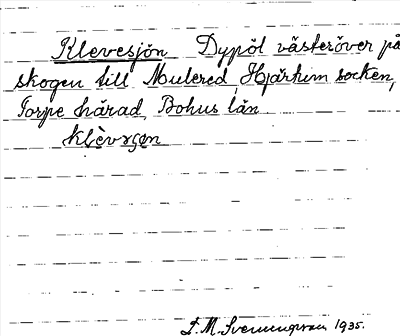 Klevesjön Dypöl västeröver på
skogen till Mulered, Hjärtum socken,
Torpe härad, Bohus län
klèvʂɵn
F. M. Svenungsson 1935.